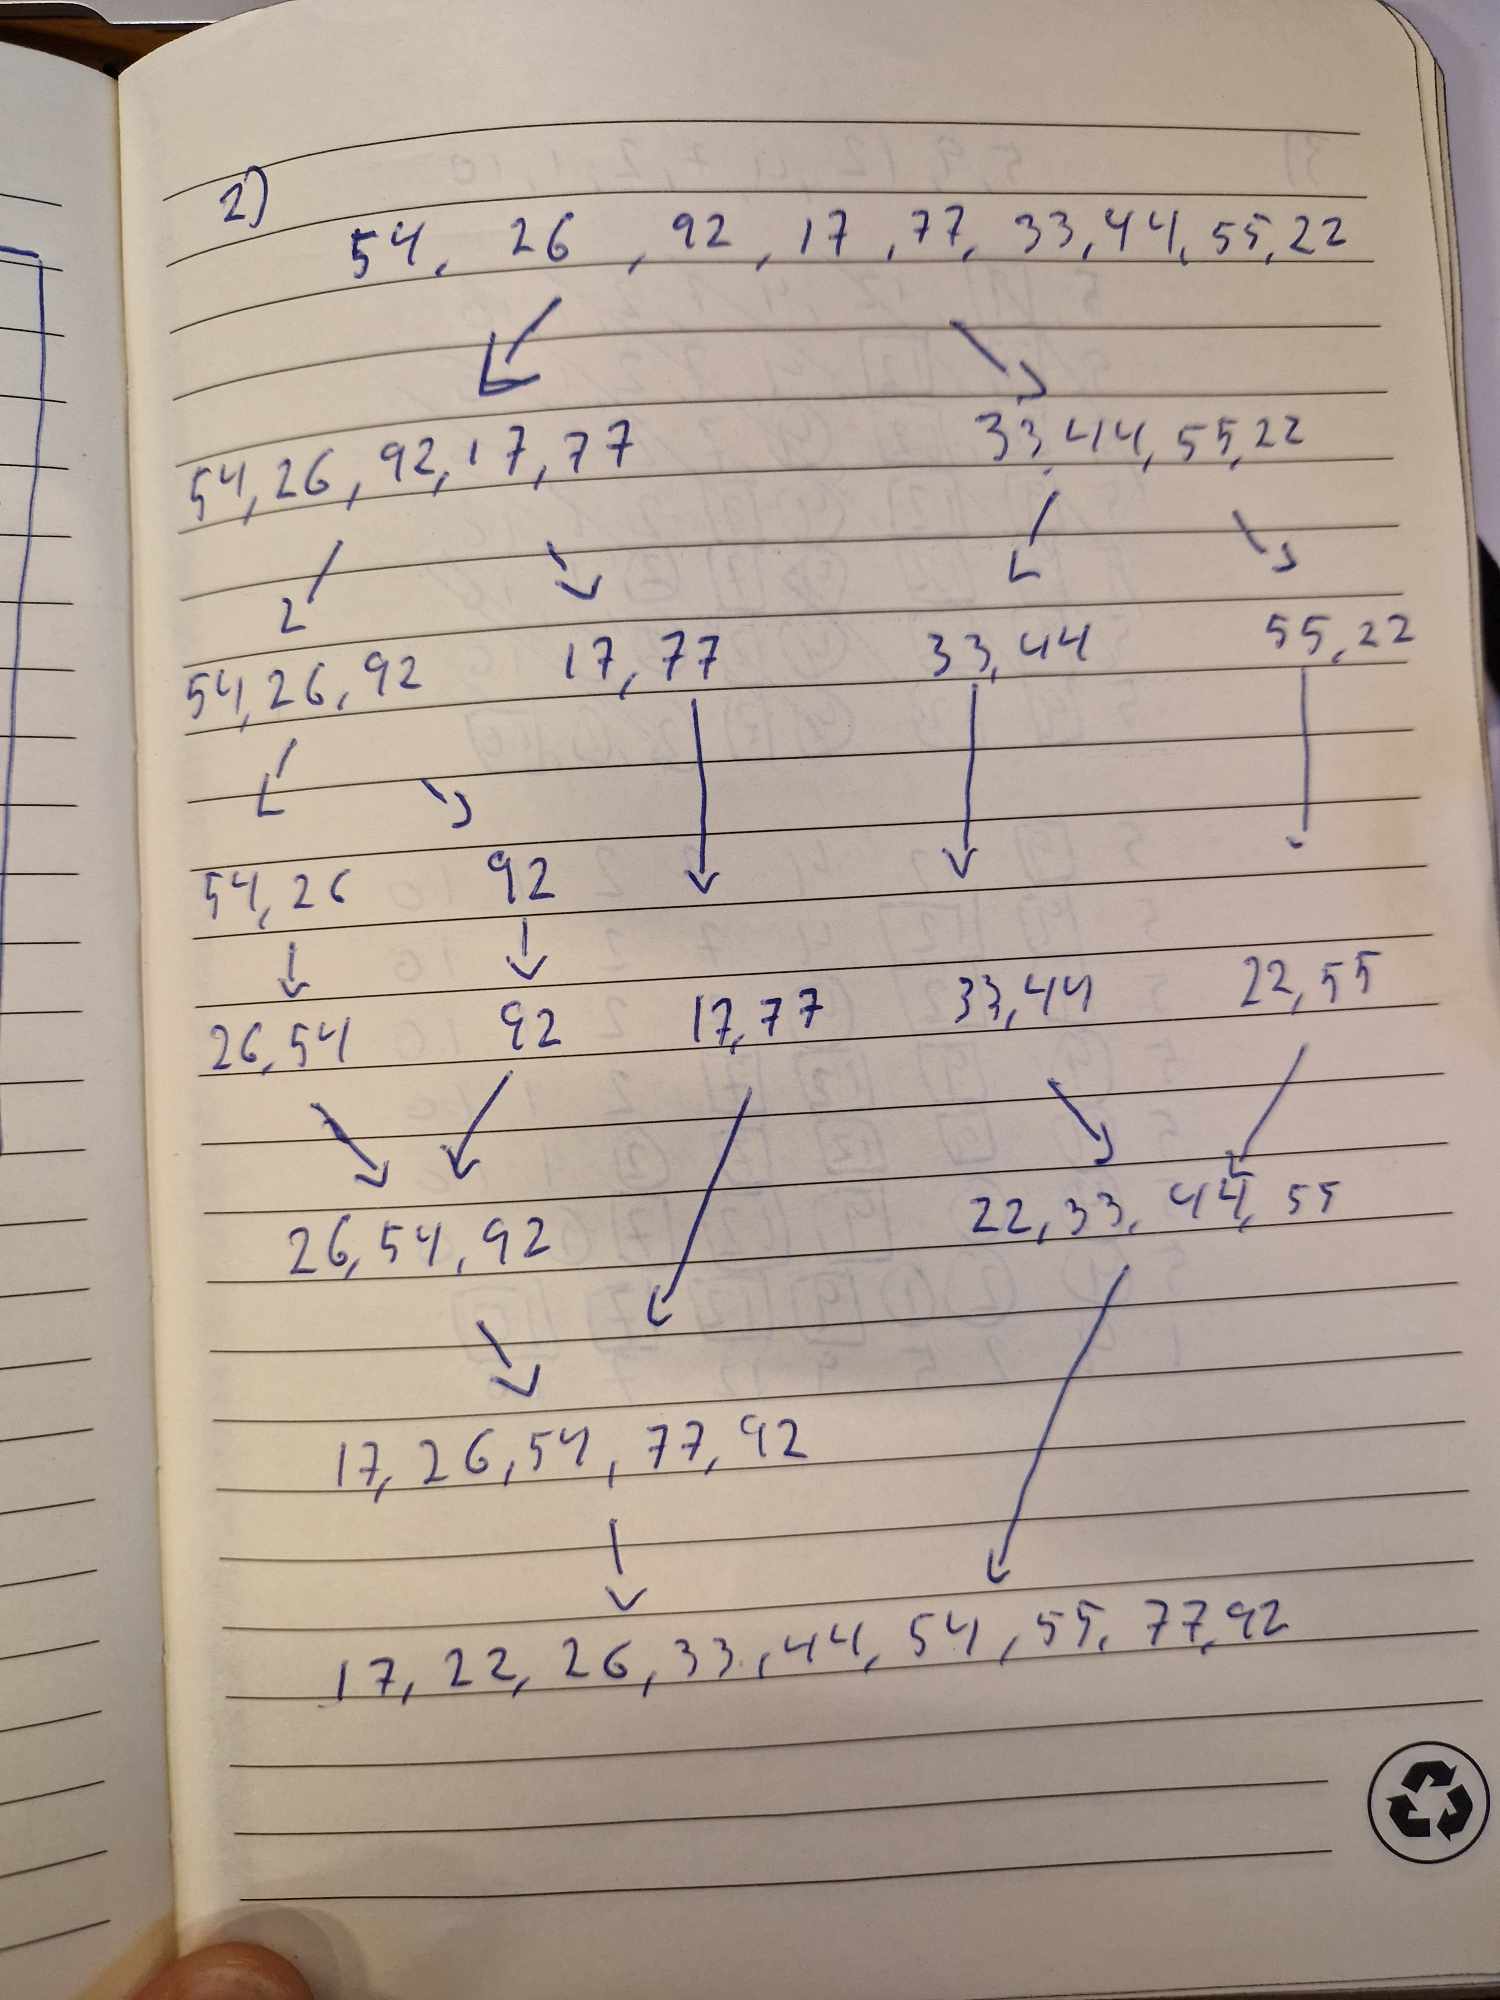 2)
54, 26, 92, 17, 77, 33, 44, 55, 22
54, 26, 92, 17, 77 33, 44, 55, 22
54, 26, 92 17, 77 33, 44 55, 22
54, 26 92
26, 54 92 17, 77 33, 44 22, 55
26, 54, 92 22, 33, 44, 55
17, 26, 54, 77, 92
17, 22, 26, 33, 44, 54, 55, 77, 92